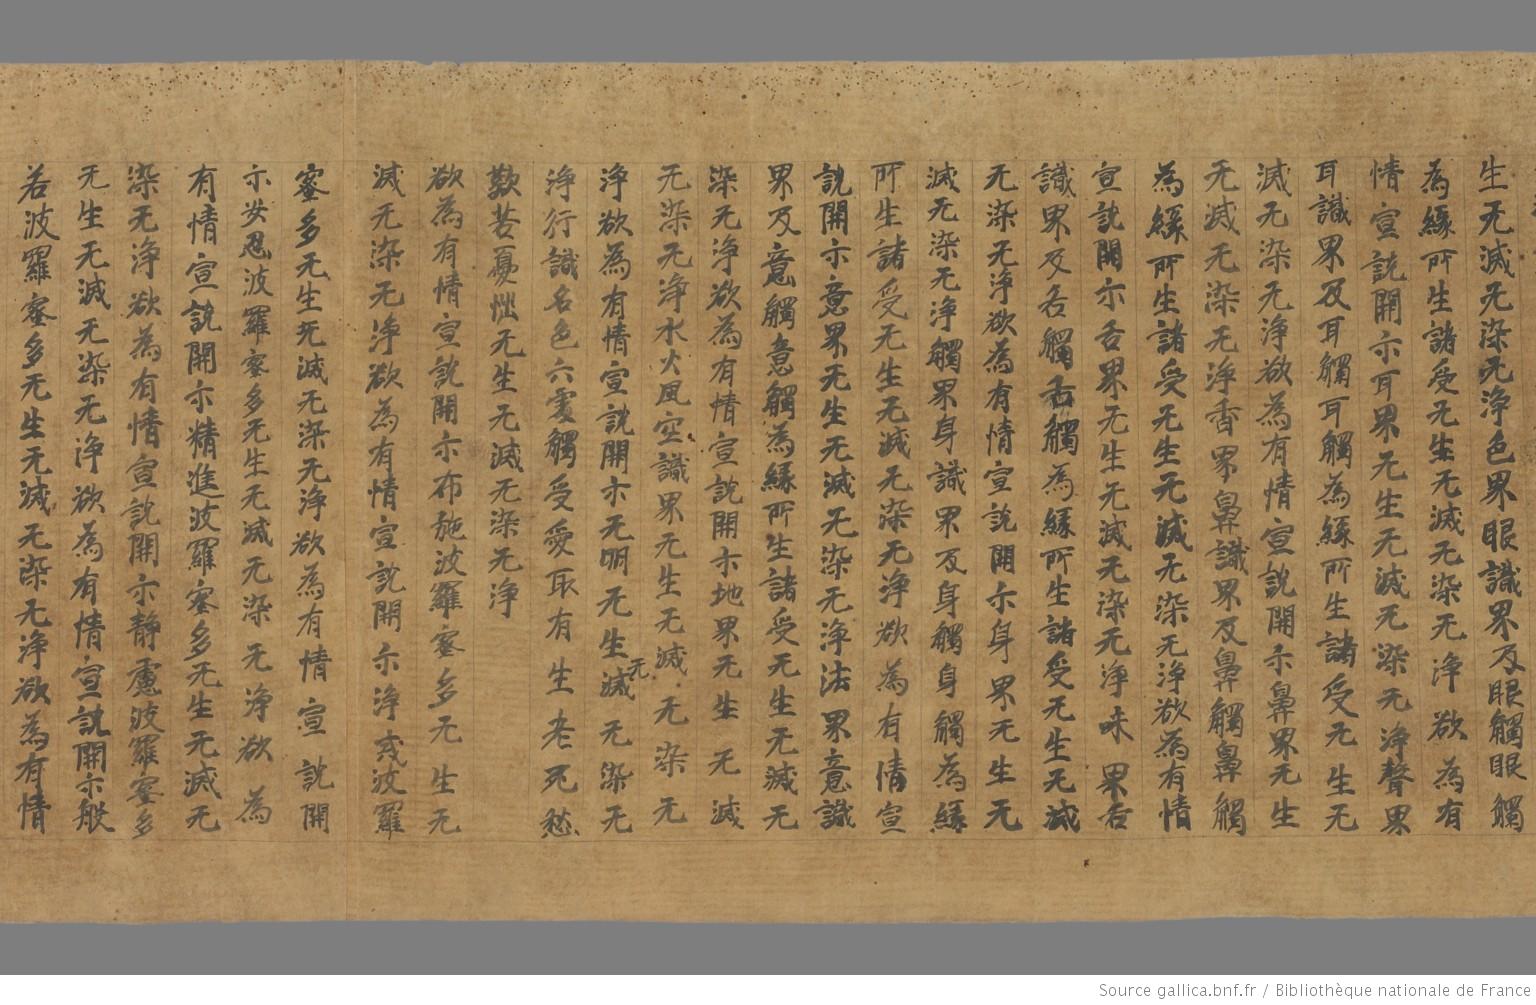 生无滅无染无淨色界眼識界及眼觸眼觸
為緣所生諸受无生无滅无染无淨欲為有
情宣說開示耳界无生无滅无染无淨聲界
耳識界及耳觸耳觸為緣所生諸受无生无
滅无染无淨欲為有情宣說開示鼻界无生
无滅无染无淨香界鼻識界及鼻觸鼻觸
為緣所生諸受无生无滅无染无淨欲為有情
宣說開示舌界无生无滅无染无淨味界舌
識界及舌觸舌觸為緣所生諸受无生无滅
无染无淨欲為有情宣說開示身界无生无
滅无染无淨觸界身識界及身觸身觸為緣
所生諸受无生无滅无染无淨欲為有情宣
說開示意界无生无滅无染无淨法界意識
界及意觸意觸為緣所生諸受无生无滅无
染无淨欲為有情宣說開示地界无生无滅
无染无淨水火風空識界无生无滅无染无
淨欲為有情宣說開示无明无生无滅无染无
淨行識名色六處觸受愛取有生老死愁
歎苦憂惱无生无滅无染无淨
欲為有情宣說開示布施波羅蜜多无生无
滅无染无淨欲為有情宣說開示淨戒波羅
蜜多无生无滅无染无淨欲為有情宣說開
示安忍波羅蜜多无生无滅无染无淨欲為
有情宣說開示精進波羅蜜多无生无滅无
染无淨欲為有情宣說開示靜慮波羅蜜多
无生无滅无染无淨欲為有情宣說開示般
若波羅蜜多无生无滅无染无淨欲為有情
Source gallica.bnf.fr / Bibliothèque nationale de France